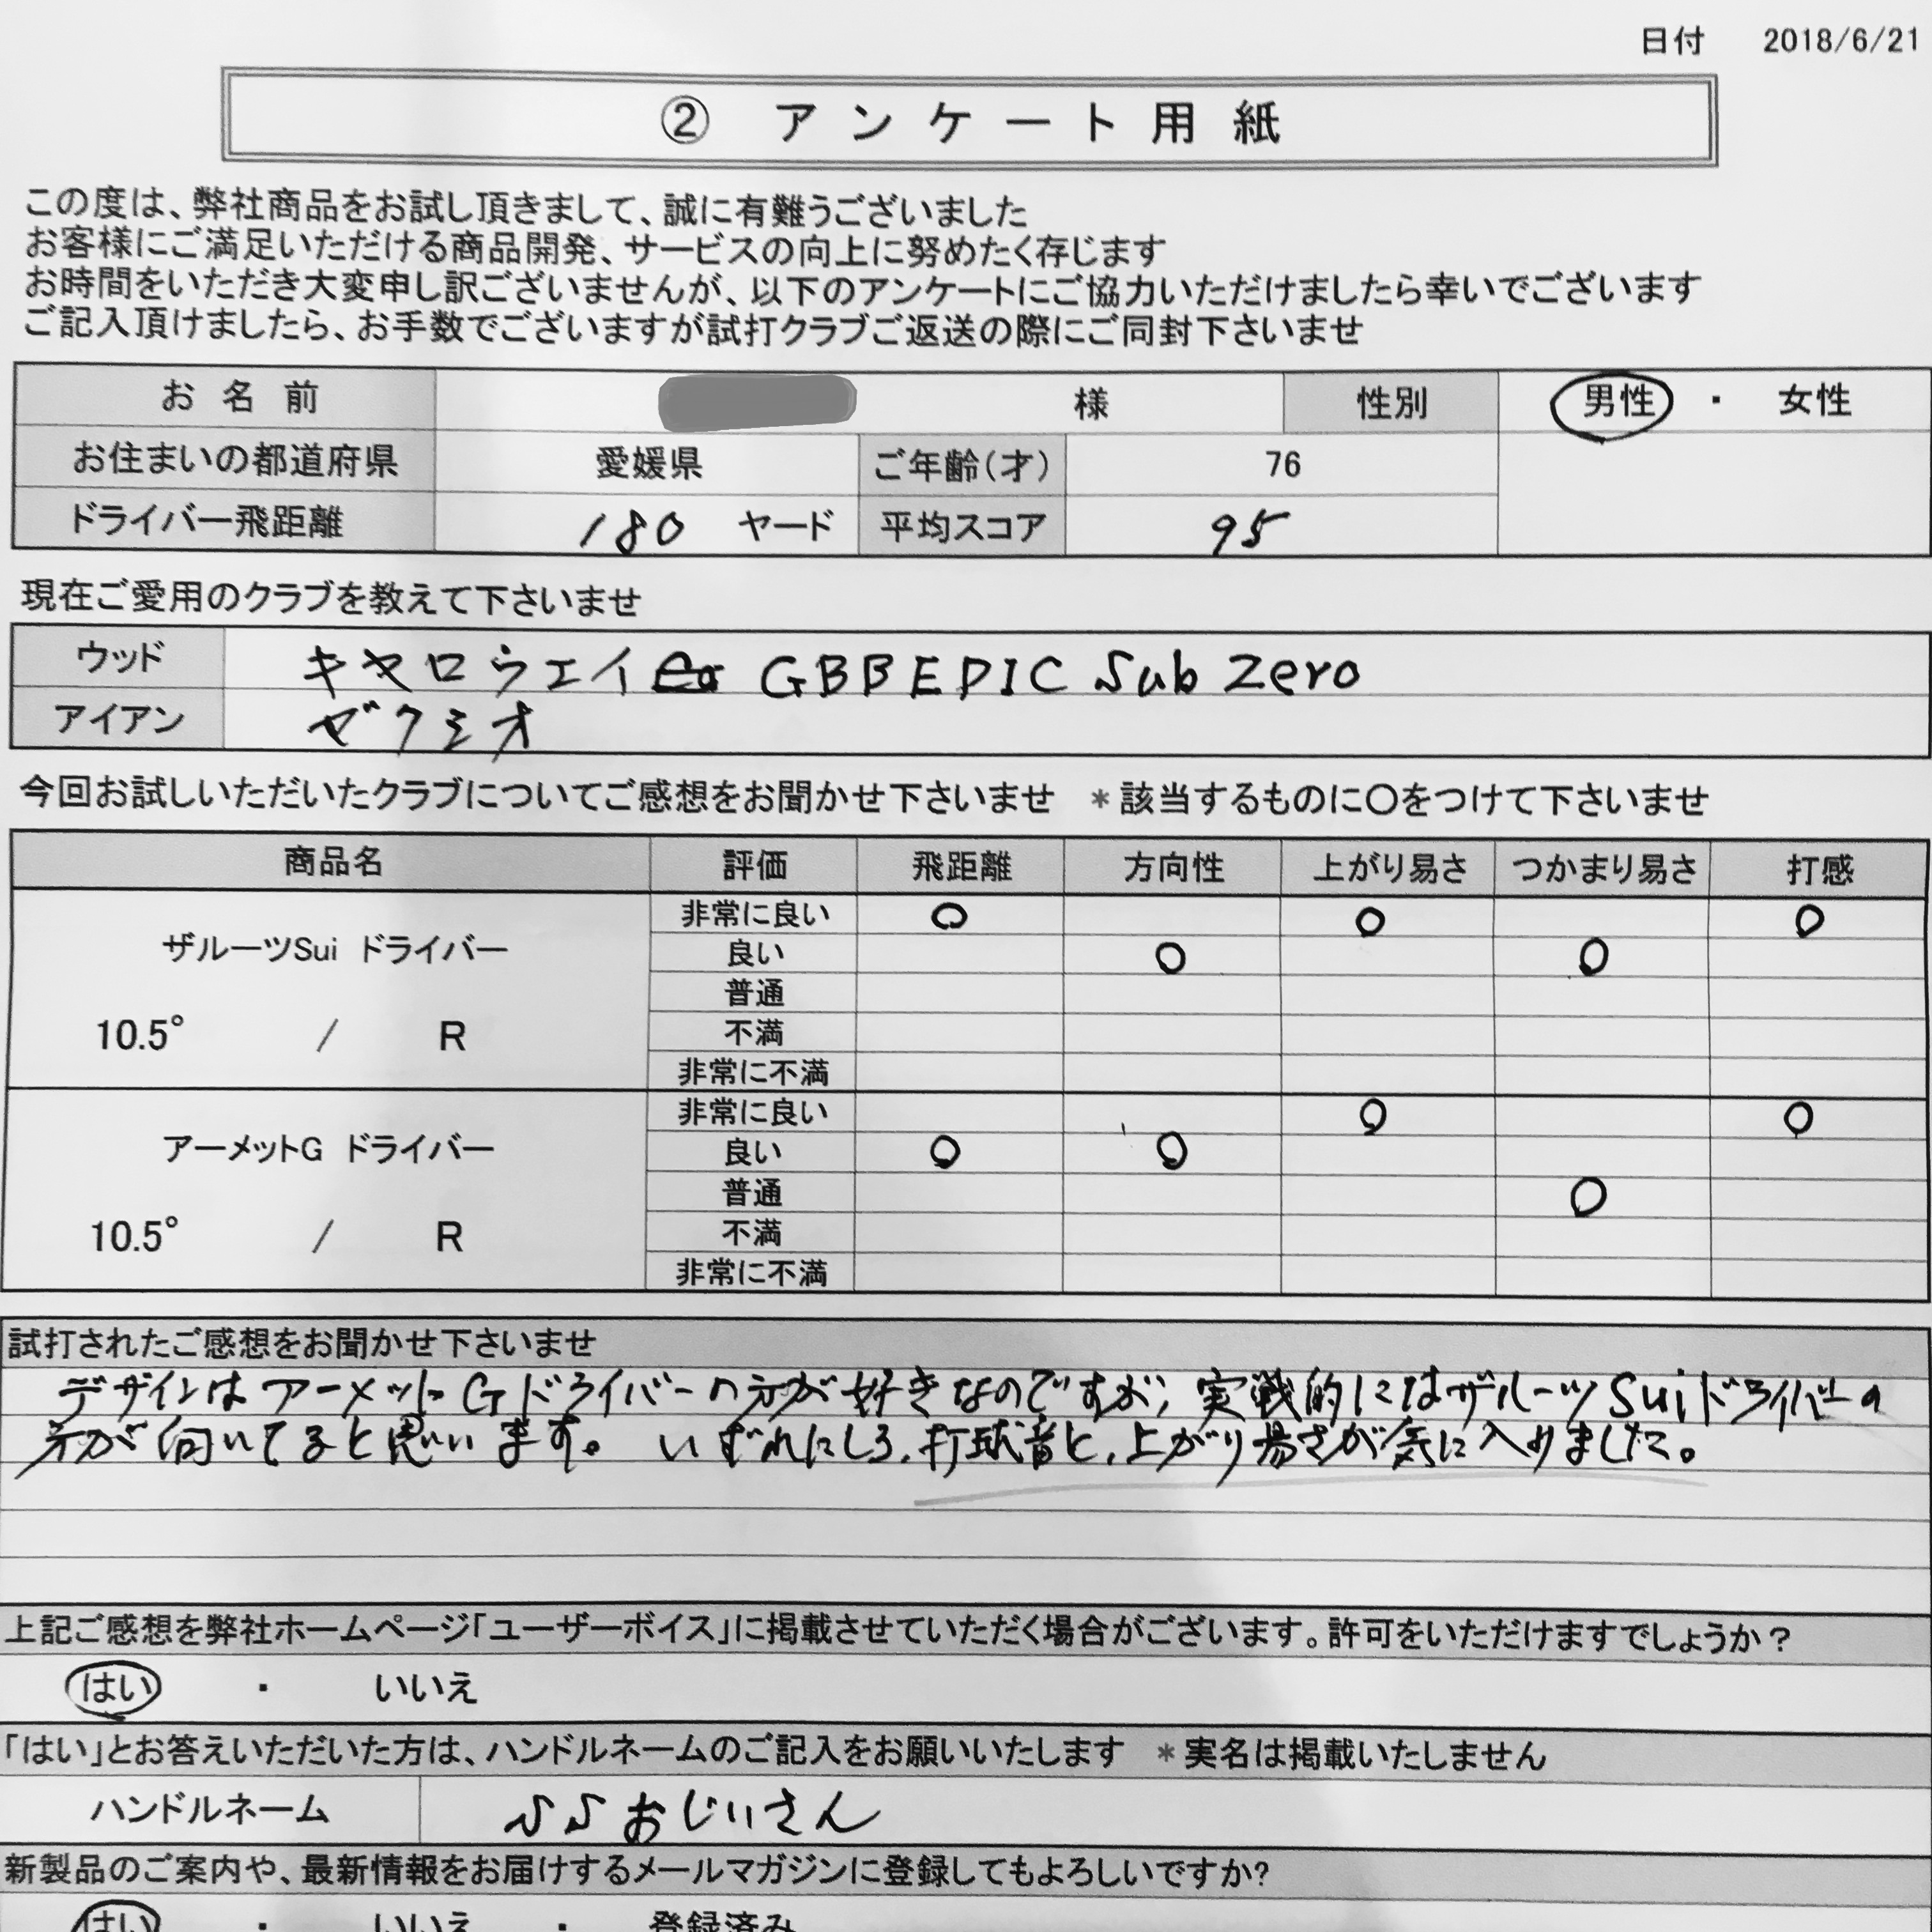 日付 2018/6/21
② アンケート用紙
この度は、弊社商品をお試し頂きまして、誠に有難うございました
お客様にご満足いただける商品開発、サービスの向上に努めたく存じます
お時間をいただき大変申し訳ございませんが、以下のアンケートにご協力いただけましたら幸いでございます
ご記入頂けましたら、お手数でございますが試打クラブご返送の際にご同封下さいませ
お名前 様 性別 男性 ・ 女性
お住まいの都道府県 愛媛県 ご年齢(才) 76
ドライバー飛距離 180 ヤード 平均スコア 95
現在ご愛用のクラブを教えて下さいませ
ウッド キャロウェイ GBB EPIC Sub Zero
アイアン ゼクシオ
今回お試しいただいたクラブについてご感想をお聞かせ下さいませ *該当するものに○をつけて下さいませ
商品名 評価 飛距離 方向性 上がり易さ つかまり易さ 打感
ザルーツSui ドライバー
10.5° / R
非常に良い ○ ○ ○
良い ○ ○
普通
不満
非常に不満
アーメットG ドライバー
10.5° / R
非常に良い ○ ○
良い ○ ○
普通 ○
不満
非常に不満
試打されたご感想をお聞かせ下さいませ
デザインはアーメットGドライバーの方が好きなのですが、実戦的にはザルーツSuiドライバーの
方が向いてると思います。 いずれにしろ、打球音と、上がり易さが気に入りました。
上記ご感想を弊社ホームページ「ユーザーボイス」に掲載させていただく場合がございます。許可をいただけますでしょうか?
はい ・ いいえ
「はい」とお答えいただいた方は、ハンドルネームのご記入をお願いいたします *実名は掲載いたしません
ハンドルネーム SSおじいさん
新製品のご案内や、最新情報をお届けするメールマガジンに登録してもよろしいですか?
はい ・ いいえ ・ 登録済み